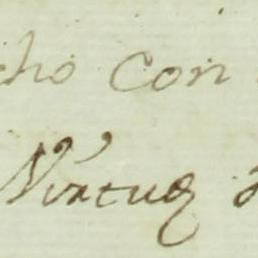 cho con
Virtuq